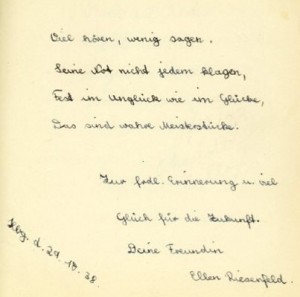 Viel hören, wenig sagen.
Seine Not nicht jedem klagen,
Fest im Unglück wie im Glücke,
Das sind wahre Meisterstücke.
Zur frdl. Erinnerung u. viel
Glück für die Zukunft.
Deine Freundin
Ellen Riesenfeld.
d. 29. 38.